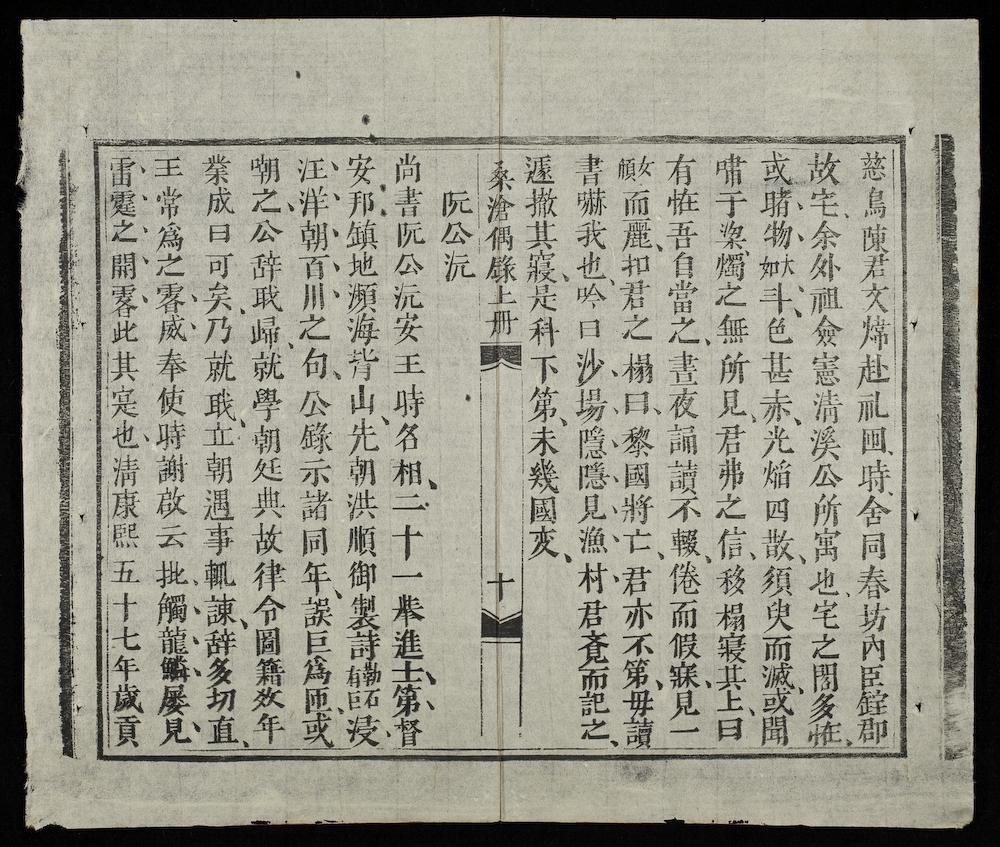 慈烏陳君文煒赴礼囬、時、舍同春坊內臣鋥郡
故宅、余外祖僉憲清溪公所寓也、宅之閣多恠、
或睹物大如斗、色甚赤、光焰四散、須臾而滅、或聞
嘯于梁、燭之無所見、君弗之信、移榻寢其上曰
有恠吾自當之、晝夜誦讀不輟、倦而假寐、見一
女頎而麗、扣君之榻曰、黎國將亡、君亦不第、毋讀
書嚇我也、吟曰、沙場隱隱見漁村、君竟而記之、
遽撤其寢、是科下第、未幾國変、
桑滄偶錄上册 十
阮公沆
尚書阮公沆安王時名相、二十一举進士、第、督
安邦鎮、地瀕海背山、先朝洪順御製詩勒石有巨浸
汪洋朝百川之句、公錄示諸同年、誤巨為匝、或
嘲之、公辞戢歸、就學朝廷典故律令圖籍、数年
業成曰可矣、乃就戢、立朝遇事輒諫、辞多切直、
王常為之霽威、奉使時謝啟云、批觸龍鱗、屡見
雷霆之開霽、此其寔也、淸康熙五十七年歲貢